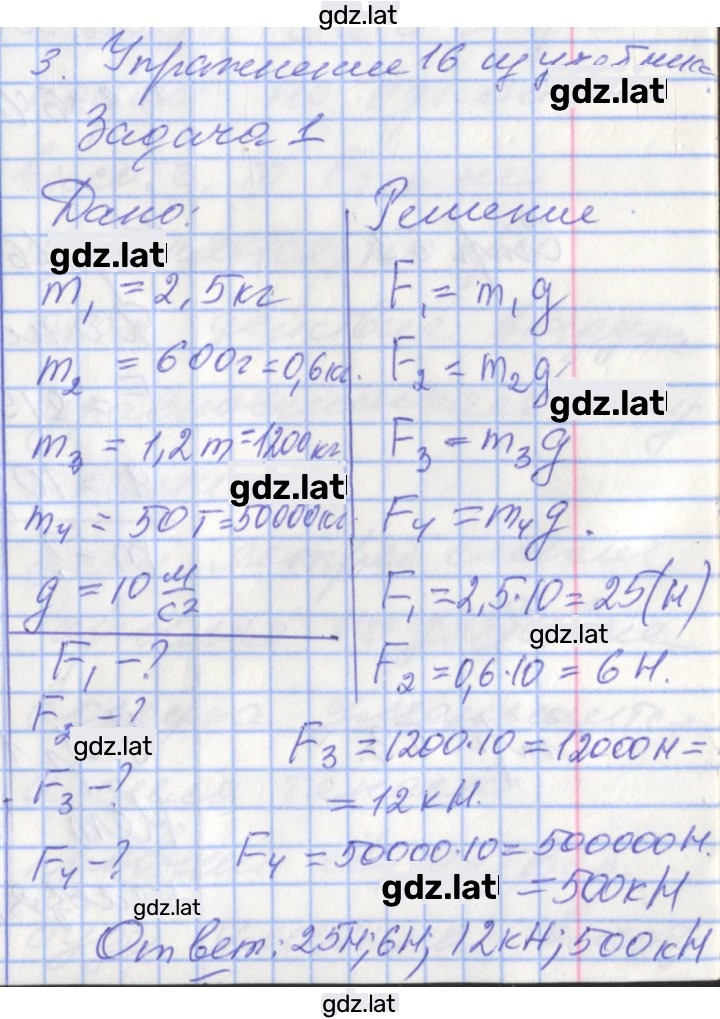 gdz.lat
3. Упражнение 16 из учебника.
gdz.lat
Задача 1
Дано:
gdz.lat
m₁ = 2,5кг
m₂ = 600г = 0,6кг.
m₃ = 1,2т = 1200кг
gdz.lat
m₄ = 50т = 50000кг
g = 10 м/с²
F₁ - ?
F₂ - ?
gdz.lat
F₃ - ?
F₄ - ?
gdz.lat
Решение
F₁ = m₁g
F₂ = m₂g
gdz.lat
F₃ = m₃g
F₄ = m₄g.
F₁ = 2,5·10 = 25(н)
gdz.lat
F₂ = 0,6·10 = 6Н.
F₃ = 1200·10 = 12000Н =
= 12кН.
F₄ = 50000·10 = 500000Н.
gdz.lat
= 500кН
Ответ: 25Н; 6Н; 12кН; 500кН
gdz.lat